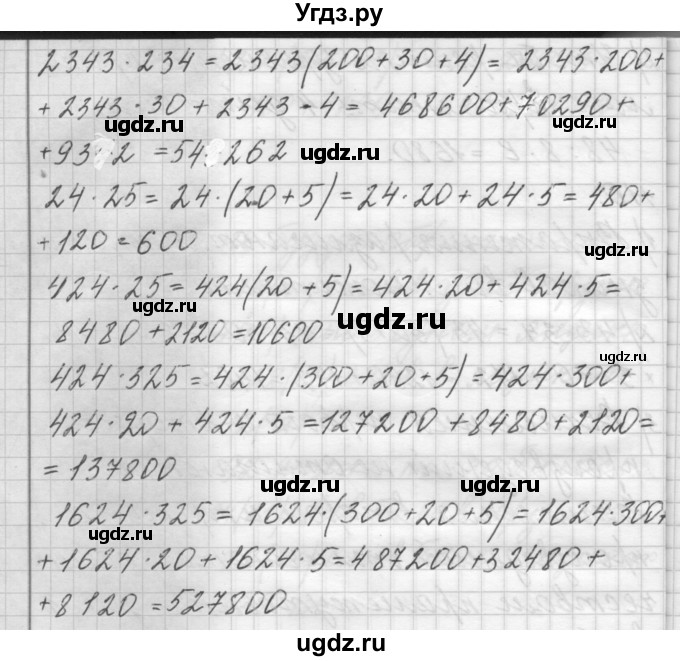 Угдз.ру
2343 · 234 = 2343(200+30+4) = 2343·200+
+ 2343 · 30 + 2343 · 4 = 468600+70290+
ugdz.ru
+93 2 = 54 262 ugdz.ru
24 · 25 = 24 · (20+5) = 24 · 20 + 24 · 5 = 480+
+120 = 600
ugdz.ru
424 · 25 = 424(20 + 5) = 424 · 20 + 424 · 5 =
ugdz.ru
ugdz.ru
8480 + 2120 = 10600
ugdz.ru
424 · 325 = 424 · (300+20+5) = 424 · 300+
424 · 20 + 424 · 5 = 127200 + 8480 + 2120 =
= 137800
ugdz.ru ugdz.ru
1624 · 325 = 1624·(300+20+5) = 1624·300+
ugdz.ru
+ 1624 · 20 + 1624 · 5 = 487200+32480+
+ 8120 = 527800
ugdz.ru